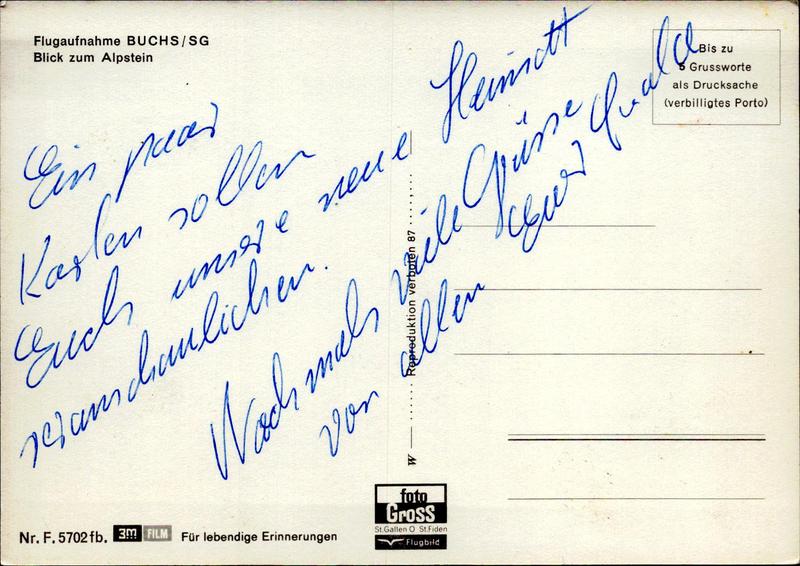 Flugaufnahme BUCHS/SG
Blick zum Alpstein
Bis zu
5 Grussworte
als Drucksache
(verbilligtes Porto)
Ein paar
Karten sollen
Euch unsere neue Heimat
veranschaulichen.
Nochmals viele Grüsse
von allen Euer Ewald
W
Reproduktion verboten 87
foto
GROSS
St.Gallen O St.Fiden
Flugbild
Nr. F. 5702 fb. 3M FILM Für lebendige Erinnerungen